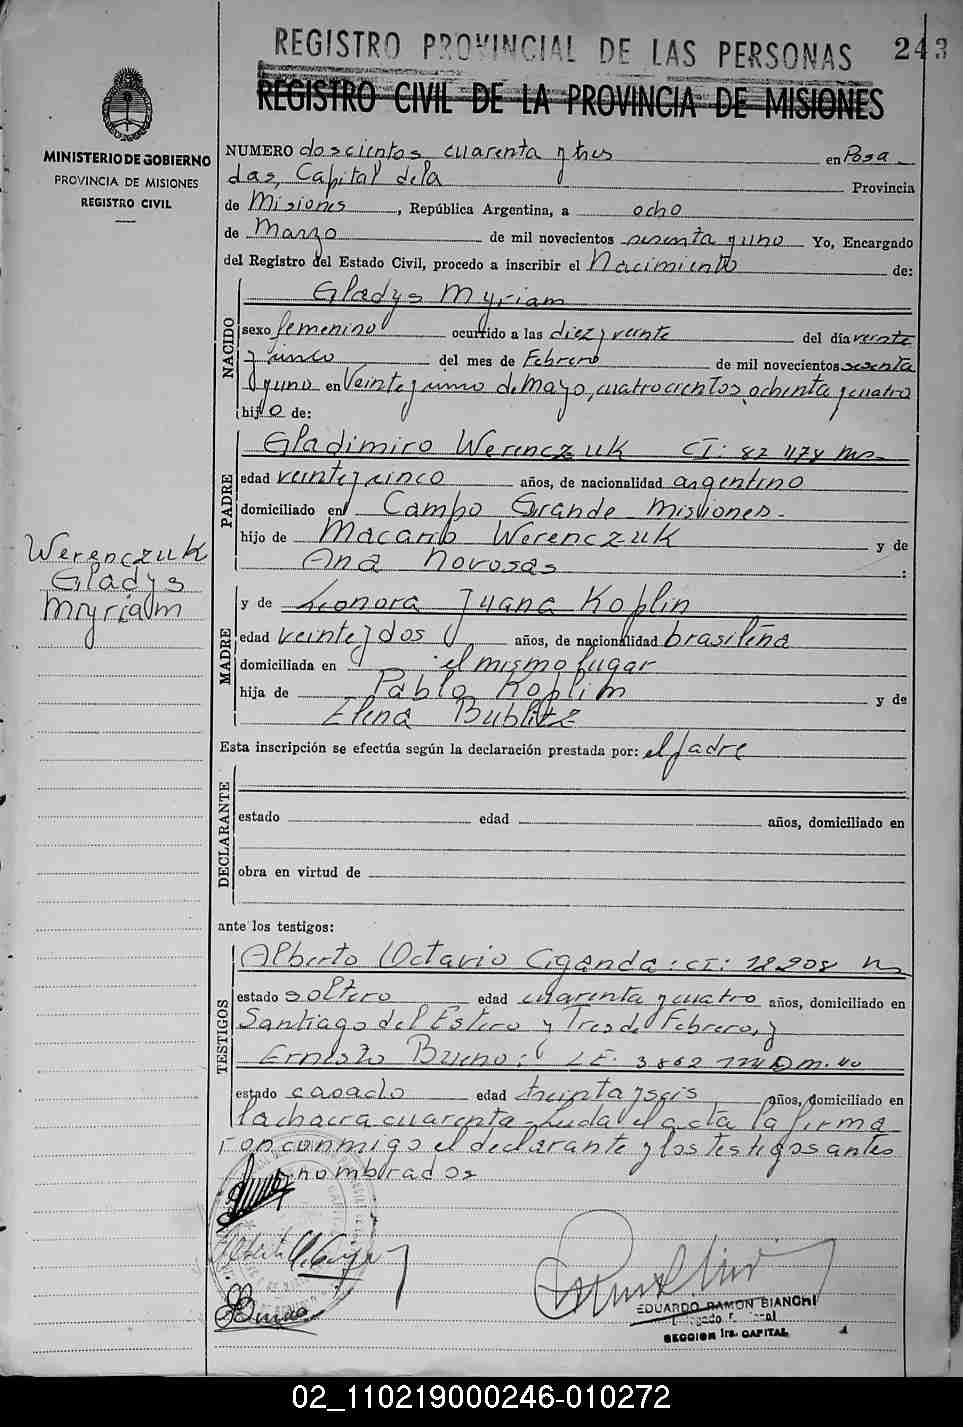 REGISTRO PROVINCIAL DE LAS PERSONAS 243
REGISTRO CIVIL DE LA PROVINCIA DE MISIONES
MINISTERIO DE GOBIERNO
PROVINCIA DE MISIONES
REGISTRO CIVIL
NUMERO doscientos cuarenta y tres en Posa-
das, Capital de la Provincia
de Misiones, República Argentina, a ocho
de Marzo de mil novecientos sesenta y uno Yo, Encargado
del Registro del Estado Civil, procedo a inscribir el Nacimiento de:
NACIDO
Gladys Myriam
sexo femenino ocurrido a las diez y veinte del día veinte
y cinco del mes de Febrero de mil novecientos sesenta
y uno en Veinte y cinco de Mayo, cuatrocientos ochenta y cuatro
hijo de:
PADRE
Gladimiro Werenczuk CI: 82 478 Ms.
edad veinte y cinco años, de nacionalidad argentino
domiciliado en Campo Grande Misiones.
hijo de Macario Werenczuk y de
Ana Novosas :
Werenczuk
Gladys
Myriam
MADRE
y de Leonora Juana Koplin
edad veinte y dos años, de nacionalidad brasileña
domiciliada en el mismo lugar
hija de Pablo Koplin y de
Elena Bublitz
Esta inscripción se efectúa según la declaración prestada por: el padre
DECLARANTE
estado edad años, domiciliado en
obra en virtud de
ante los testigos:
TESTIGOS
Alberto Octavio Ciganda: CI: 12.208
estado soltero edad cuarenta y cuatro años, domiciliado en
Santiago del Estero y Tres de Febrero, y
Ernesto Bueno: LE. 3862
estado casado edad treinta y seis años, domiciliado en
la chacra cuarenta. Leída el acta la firma
ron conmigo el declarante y los testigos antes
nombrados
EDUARDO RAMON BIANCHI
SECCION 1ra. CAPITAL
02_110219000246-010272